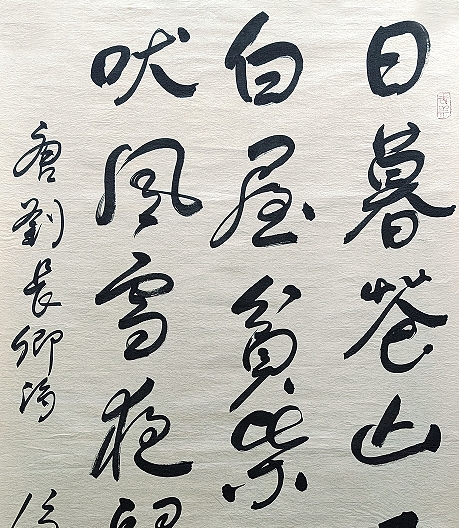 日暮蒼山
白屋貧柴
吠風雪夜
唐劉長卿詩